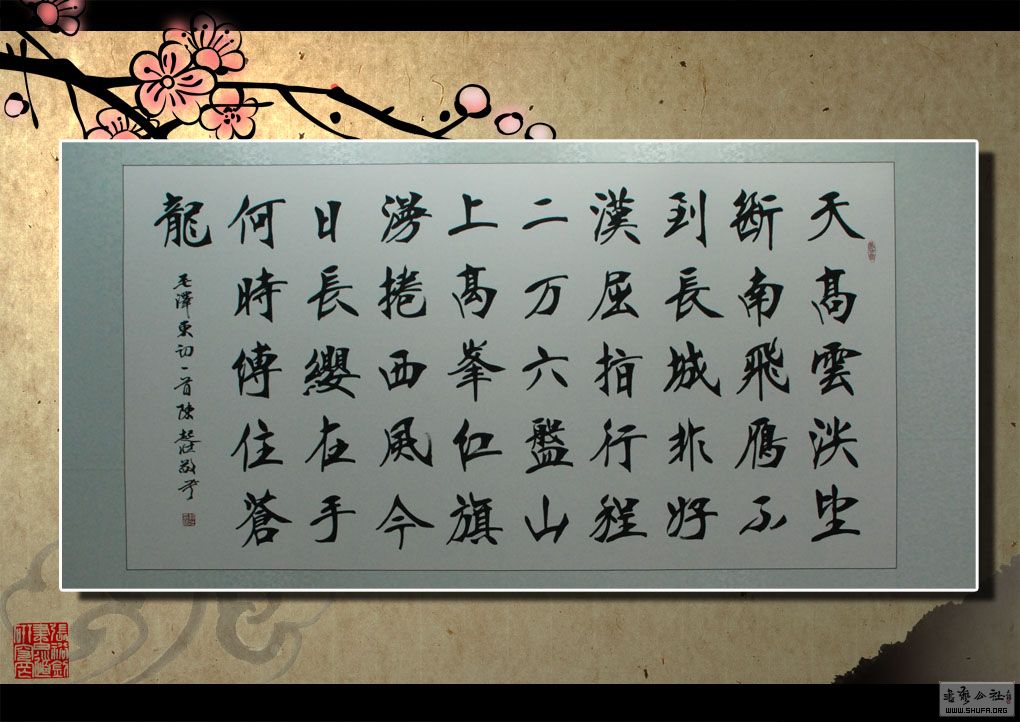 天髙雲淡望
断南飛雁不
到長城非好
漢屈指行程
二万六盤山
上髙峯红旗
漫捲西風今
日長纓在手
何時缚住蒼
龍
毛澤東词一首陳
书艺公社
WWW.SHUFA.ORG